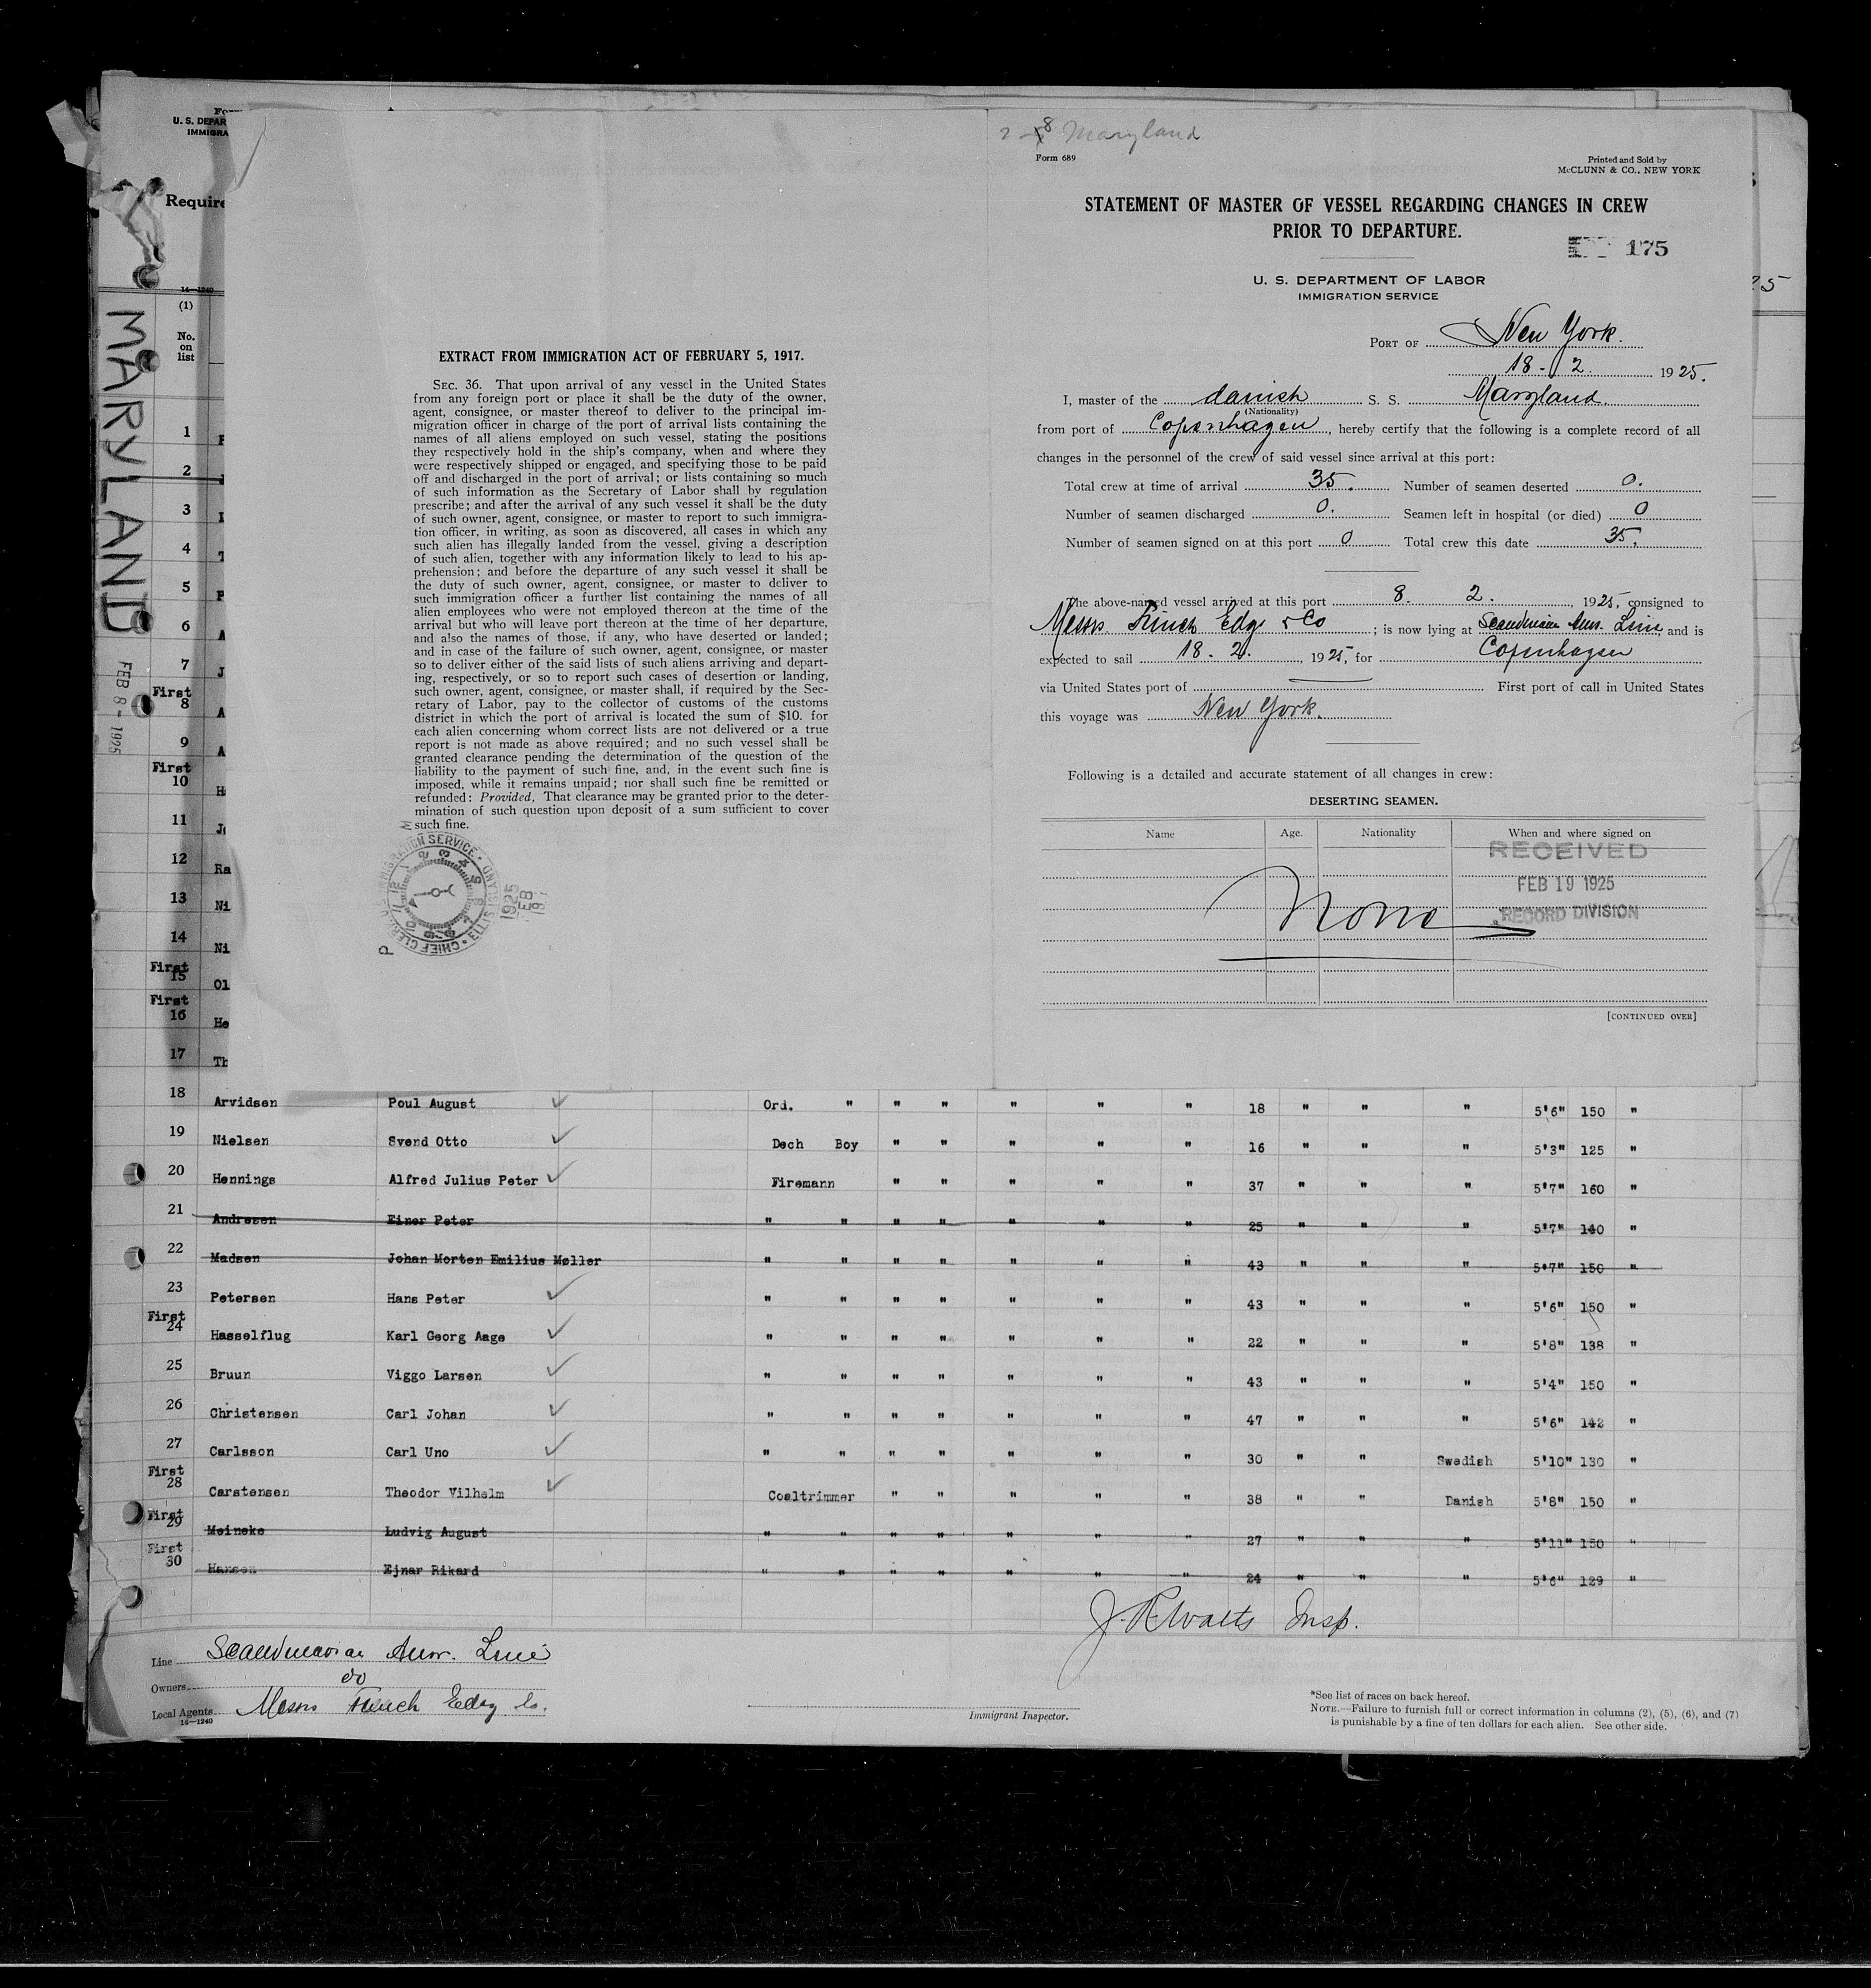 2-8 Maryland
Form 689
Printed and Sold by
McCLUNN & CO., NEW YORK
STATEMENT OF MASTER OF VESSEL REGARDING CHANGES IN CREW
PRIOR TO DEPARTURE.
175
U. S. DEPARTMENT OF LABOR
IMMIGRATION SERVICE
PORT OF New York.
18 - 2. 1925.
I, master of the danish S. S. Maryland.
(Nationality)
from port of Copenhagen, hereby certify that the following is a complete record of all
changes in the personnel of the crew of said vessel since arrival at this port:
Total crew at time of arrival 35. Number of seamen deserted 0.
Number of seamen discharged 0. Seamen left in hospital (or died) 0
Number of seamen signed on at this port 0 Total crew this date 35.
The above-named vessel arrived at this port 8. 2. , 1925, consigned to
Messrs. Funch Edye & Co ; is now lying at Scandinavian Am. Line and is
expected to sail 18. 2. , 1925, for Copenhagen
via United States port of First port of call in United States
this voyage was New York.
Following is a detailed and accurate statement of all changes in crew:
DESERTING SEAMEN.
Name Age. Nationality When and where signed on
RECEIVED
FEB 19 1925
RECORD DIVISION
None
[CONTINUED OVER]
EXTRACT FROM IMMIGRATION ACT OF FEBRUARY 5, 1917.
SEC. 36. That upon arrival of any vessel in the United States
from any foreign port or place it shall be the duty of the owner,
agent, consignee, or master thereof to deliver to the principal im-
migration officer in charge of the port of arrival lists containing the
names of all aliens employed on such vessel, stating the positions
they respectively hold in the ship's company, when and where they
were respectively shipped or engaged, and specifying those to be paid
off and discharged in the port of arrival; or lists containing so much
of such information as the Secretary of Labor shall by regulation
prescribe; and after the arrival of any such vessel it shall be the duty
of such owner, agent, consignee, or master to report to such immigra-
tion officer, in writing, as soon as discovered, all cases in which any
such alien has illegally landed from the vessel, giving a description
of such alien, together with any information likely to lead to his ap-
prehension; and before the departure of any such vessel it shall be
the duty of such owner, agent, consignee, or master to deliver to
such immigration officer a further list containing the names of all
alien employees who were not employed thereon at the time of the
arrival but who will leave port thereon at the time of her departure,
and also the names of those, if any, who have deserted or landed;
and in case of the failure of such owner, agent, consignee, or master
so to deliver either of the said lists of such aliens arriving and depart-
ing, respectively, or so to report such cases of desertion or landing,
such owner, agent, consignee, or master shall, if required by the Sec-
retary of Labor, pay to the collector of customs of the customs
district in which the port of arrival is located the sum of $10. for
each alien concerning whom correct lists are not delivered or a true
report is not made as above required; and no such vessel shall be
granted clearance pending the determination of the question of the
liability to the payment of such fine, and, in the event such fine is
imposed, while it remains unpaid; nor shall such fine be remitted or
refunded: Provided, That clearance may be granted prior to the deter-
mination of such question upon deposit of a sum sufficient to cover
such fine.
CHIEF CLERK U.S. IMMIGRATION SERVICE ELLIS ISLAND
1925
FEB
U. S. DEPAR
IMMIGRA
Require
14—1240
(1)
No.
on
list
MARYLAND
FEB 8 - 1925
1
2
3
4
5
6
7
First
8
9
First
10
11
12 Ra
13 Ni
14 Ni
First
15 Ol
First
16 He
17 Th
18 Arvidsen Poul August Ord. " " " " " " 18 " " " 5'6" 150 "
19 Nielsen Svend Otto Dech Boy " " " " " 16 " " " 5'3" 125 "
20 Hennings Alfred Julius Peter Firemann " " " " " 37 " " " 5'7" 160 "
21 Andresen Einer Peter " " " " " " " 25 " " " 5'7" 140 "
22 Madsen Johan Morten Emilius Møller " " " " " " " 43 " " " 5'7" 150 "
23 Petersen Hans Peter " " " " " " " 43 " " " 5'6" 150 "
First
24 Hasselflug Karl Georg Aage " " " " " " " 22 " " " 5'8" 138 "
25 Bruun Viggo Larsen " " " " " " " 43 " " " 5'4" 150 "
26 Christensen Carl Johan " " " " " " " 47 " " " 5'6" 142 "
27 Carlsson Carl Uno " " " " " " " 30 " " Swedish 5'10" 130 "
First
28 Carstensen Theodor Vilhelm Coaltrimmer " " " " " 38 " " Danish 5'8" 150 "
First
29 Meineke Ludvig August " " " " " " " 27 " " " 5'11" 150 "
First
30 Hansen Ejnar Rikard " " " " " " " 24 " " " 5'6" 129 "
J. R. Watts Insp.
Line Scandinavian Amr. Line
Owners do
Local Agents Messrs Funch Edey Co.
14—1240
Immigrant Inspector.
*See list of races on back hereof.
NOTE.—Failure to furnish full or correct information in columns (2), (5), (6), and (7)
is punishable by a fine of ten dollars for each alien. See other side.